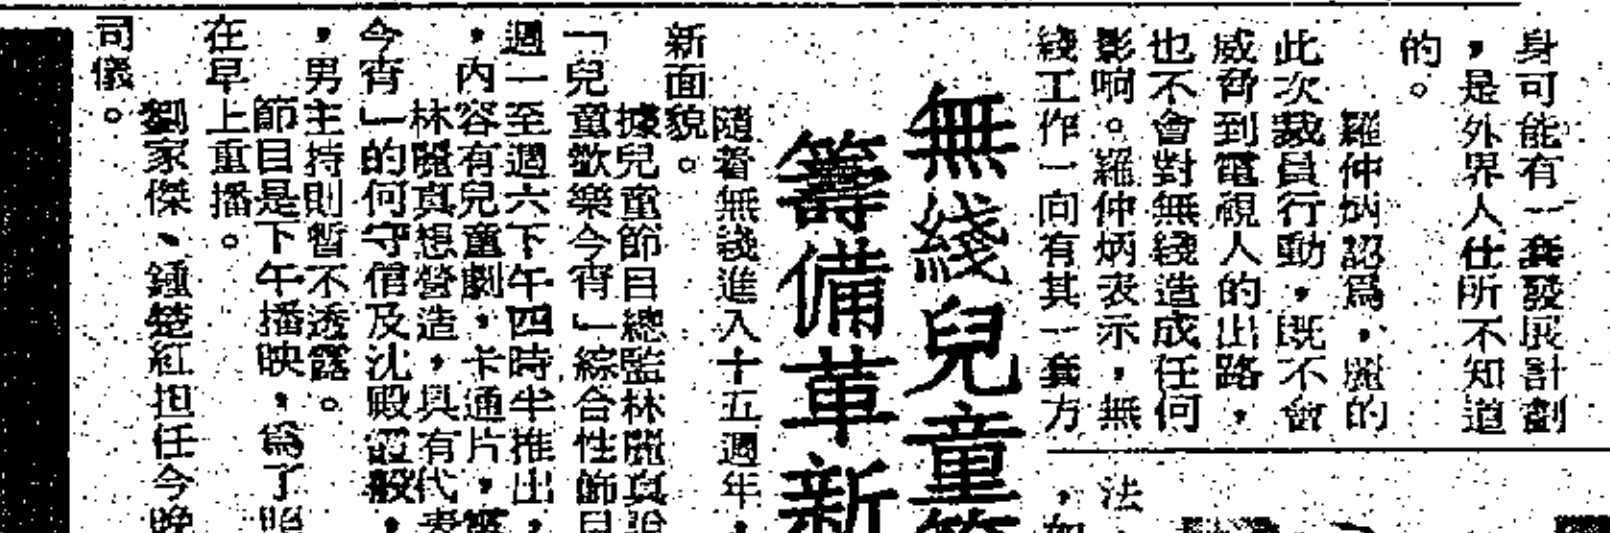 身可能有一套發展計劃
，是外界人仕所不知道
的。
羅仲炳認爲，麗的
此次裁員行動，既不會
威脅到電視人的出路，
也不會對無綫造成任何
影响。羅仲炳表示，無
綫工作一向有其一套方
法，
如
無綫兒童節
籌備革新
隨着無綫進入十五週年，
新面貌。
據兒童節目總監林麗真說
「兒童歡樂今宵」綜合性節目
週一至週六下午四時半推出，
，內容有兒童劇，卡通片，
林麗真想營造，具有代表
今宵」的何守信及沈殿霞般，
，男主持則暫不透露。
節目是下午播映，爲了
在早上重播。
劉家傑、鍾楚紅担任今晚
司儀。